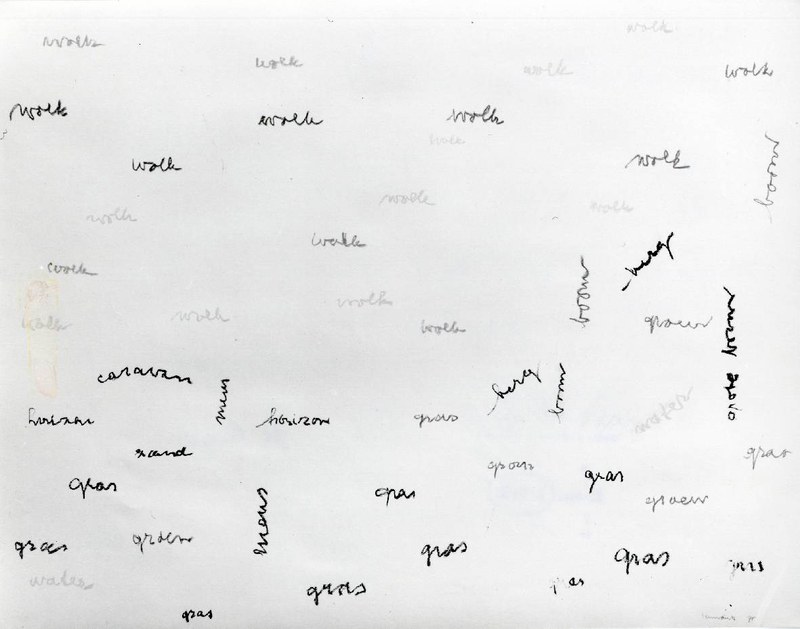 wolk
wolk
wolk
wolk
wolk
wolk
wolk
wolk
wolk
wolk
wolk
boom
wolk
wolk
wolk
wolk
berg
wolk
boom
wolk
wolk
wolk
groen
wolk
boom
caravan
berg
boom
mens
horizon
horizon
gras
water
zand
gras
groen
gras
gras
gras
groen
mens
groen
gras
gras
gras
water
gras
gras